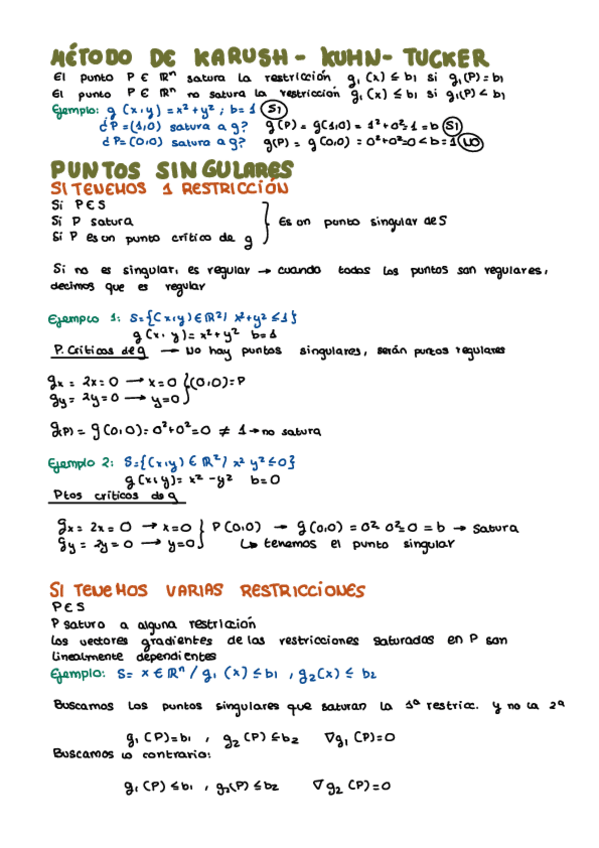 MÉTODO DE KARUSH - KUHN - TUCKER
El punto P ∈ ℝⁿ satura la restricción g₁(x) ≤ b₁ si g₁(P) = b₁
El punto P ∈ ℝⁿ no satura la restriccion g₁(x) ≤ b₁ si g₁(P) < b₁
Ejemplo: g(x,y) = x² + y² ; b = 1 (SI)
¿P = (1,0) satura a g? g(P) = g(1,0) = 1² + 0² = 1 = b (SI)
¿P = (0,0) satura a g? g(P) = g(0,0) = 0² + 0² = 0 < b = 1 (NO)
PUNTOS SINGULARES
SI TENEMOS 1 RESTRICCIÓN
Si P ∈ S
Si P satura } Es un punto singular de S
Si P es un punto crítico de g
Si no es singular, es regular → cuando todos los puntos son regulares,
decimos que es regular
Ejemplo 1: S={(x,y) ∈ ℝ² / x²+y² ≤ 1}
g(x,y) = x² + y² b=1
P. Críticos de g → No hay puntos singulares, serán puntos regulares
gx = 2x = 0 → x=0 } (0,0)=P
gy = 2y = 0 → y=0
g(P) = g(0,0) = 0²+0²=0 ≠ 1 → no satura
Ejemplo 2: S={(x,y) ∈ ℝ² / x² y² ≤ 0}
g(x,y) = x² - y² b=0
Ptos críticos de g
gx = 2x = 0 → x=0 } P(0,0) → g(0,0) = 0² 0²=0 = b → satura
gy = 2y = 0 → y=0 ↳ tenemos el punto singular
SI TENEMOS VARIAS RESTRICCIONES
P ∈ S
P satura a alguna restricción
Los vectores gradientes de las restricciones saturadas en P son
linealmente dependientes
Ejemplo: S = x ∈ ℝⁿ / g₁(x) ≤ b₁ , g₂(x) ≤ b₂
Buscamos los puntos singulares que saturan la 1ª restricc. y no la 2ª
g₁(P)=b₁ , g₂(P) ≤ b₂ ∇g₁(P)=0
Buscamos lo contrario:
g₁(P) ≤ b₁ , g₂(P) ≤ b₂ ∇g₂(P)=0